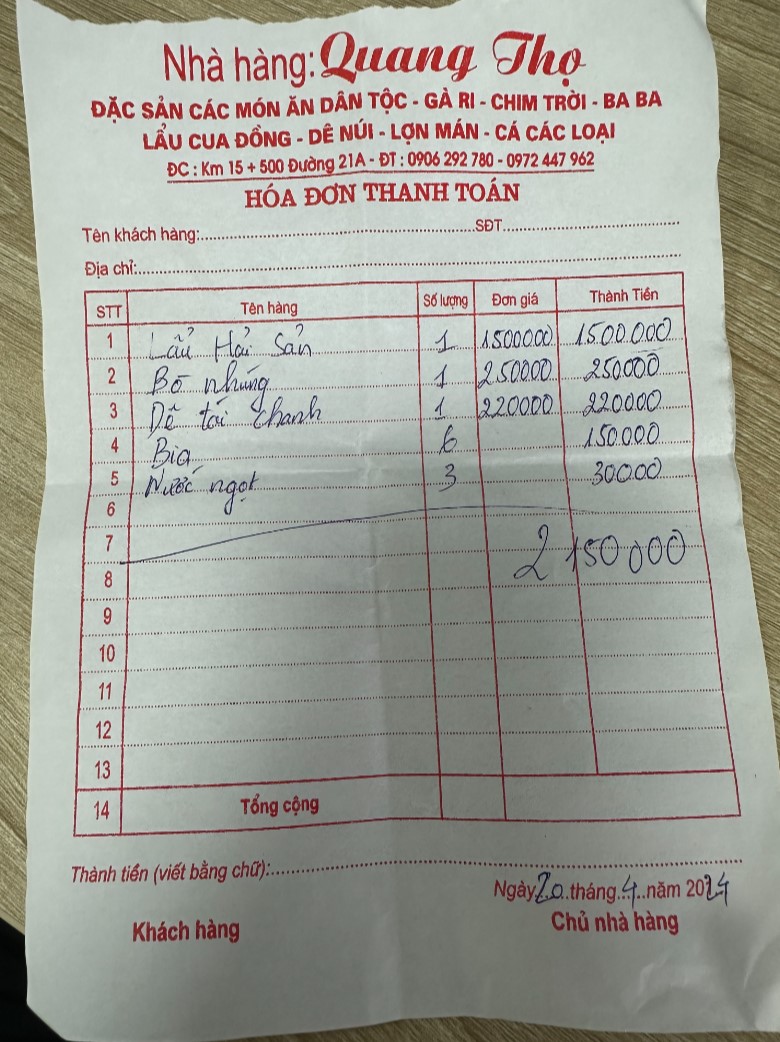 Nhà hàng: Quang Thọ
ĐẶC SẢN CÁC MÓN ĂN DÂN TỘC - GÀ RI - CHIM TRỜI - BA BA
LẨU CUA ĐỒNG - DÊ NÚI - LỢN MÁN - CÁ CÁC LOẠI
ĐC : Km 15 + 500 Đường 21A - ĐT : 0906 292 780 - 0972 447 962
HÓA ĐƠN THANH TOÁN
Tên khách hàng: SĐT
Địa chỉ:
STT Tên hàng Số lượng Đơn giá Thành Tiền
1 Lẩu Hải Sản 1 1500000 1500.000
2 Bò nhúng 1 250000 250000
3 Dê tái chanh 1 220000 220000
4 Bia 6 150.000
5 Nước ngọt 3 30000
6
7 2 150000
8
9
10
11
12
13
14 Tổng cộng
Thành tiền (viết bằng chữ):
Ngày 20 tháng 4 năm 2024
Khách hàng Chủ nhà hàng